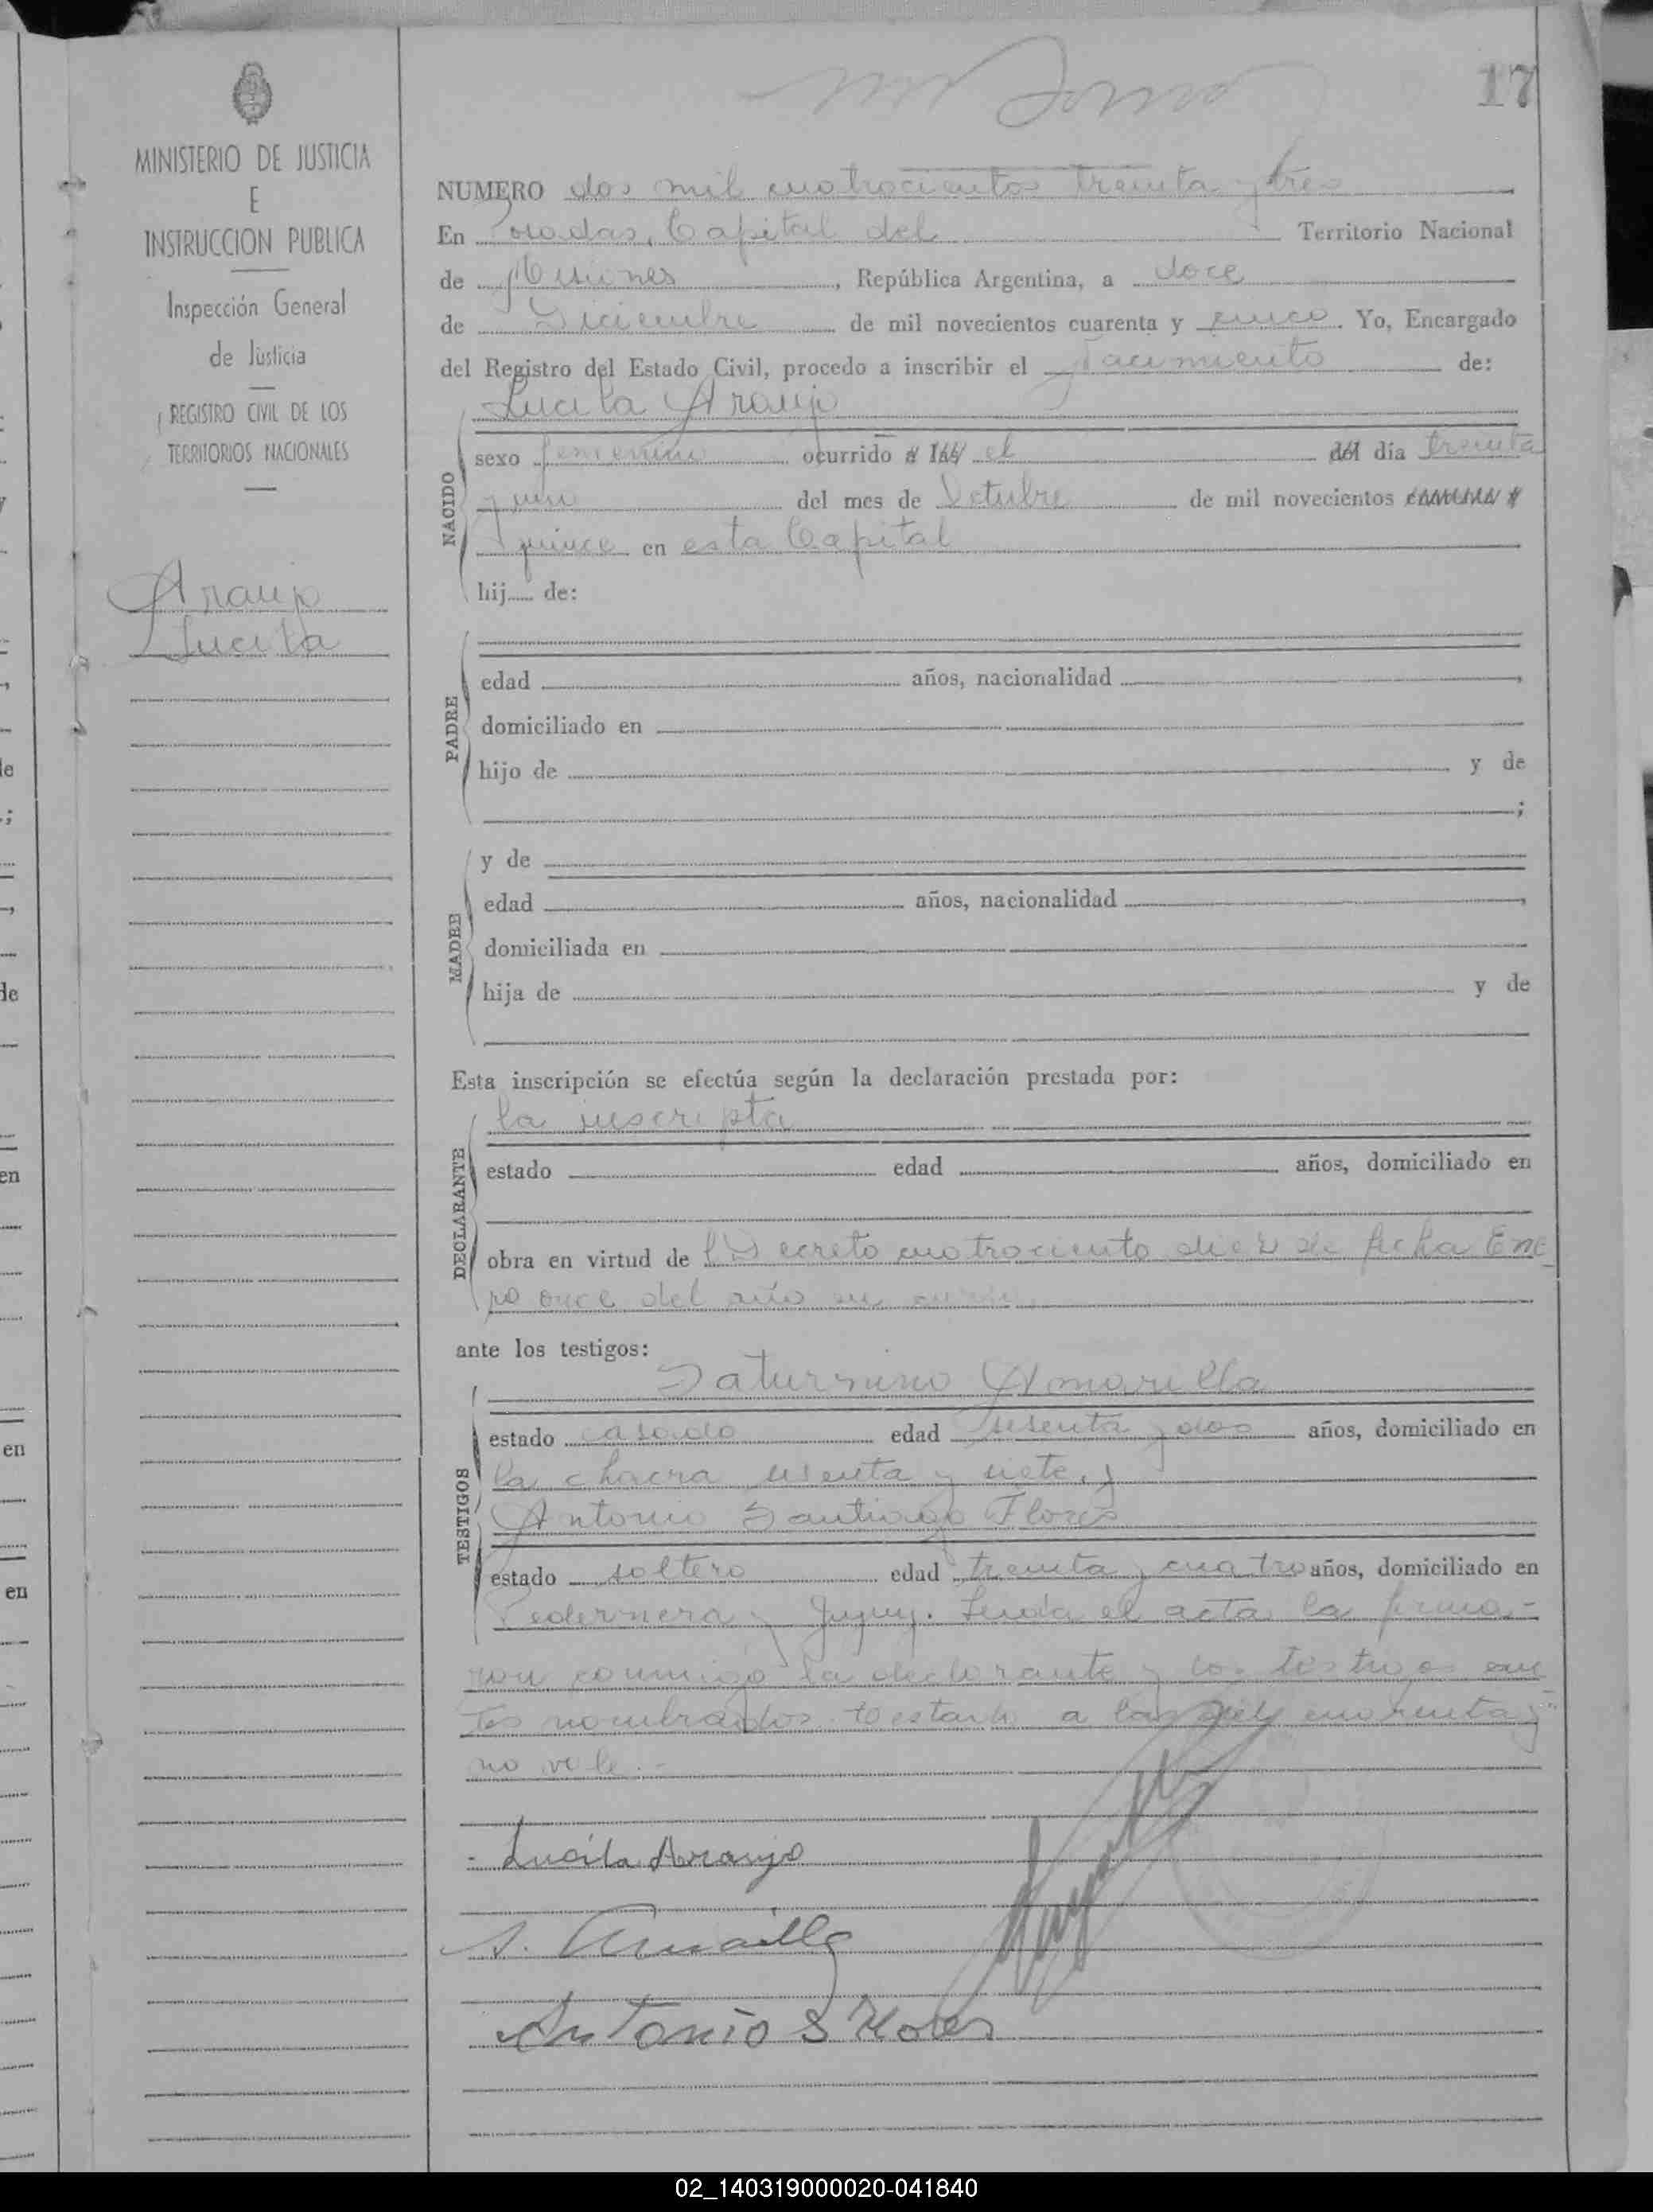 17
MINISTERIO DE JUSTICIA
E
INSTRUCCION PUBLICA
Inspección General
de Justicia
REGISTRO CIVIL DE LOS
TERRITORIOS NACIONALES
Araujo
Lucila
NUMERO dos mil cuatrocientos treinta y tres
En Posadas, Capital del Territorio Nacional
de Misiones, República Argentina, a doce
de Diciembre de mil novecientos cuarenta y cinco. Yo, Encargado
del Registro del Estado Civil, procedo a inscribir el Nacimiento de:
Lucila Araujo
NACIDO
sexo femenino ocurrido a las el del día treinta
y uno del mes de Octubre de mil novecientos cuarenta y
quince en esta Capital
hij de:
PADRE
edad años, nacionalidad ,
domiciliado en
hijo de y de
;
MADRE
y de
edad años, nacionalidad ,
domiciliada en
hija de y de
Esta inscripción se efectúa según la declaración prestada por:
DECLARANTE
la inscripta
estado edad años, domiciliado en
obra en virtud de Decreto cuatrociento diez de fecha Ene
ro once del año en curso
ante los testigos:
TESTIGOS
Saturnino Amarilla
estado casado edad sesenta y dos años, domiciliado en
la chacra sesenta y siete, y
Antonio Santiago Flores
estado soltero edad treinta y cuatro años, domiciliado en
Pedernera y Jujuy. Leida el acta la firma-
ron conmigo la declarante y los testigos an
tes nombrados. testado a las del cuarenta y
no vale.-
Lucila Araujo
S. Amarilla
Antonio S Flores
02_140319000020-041840